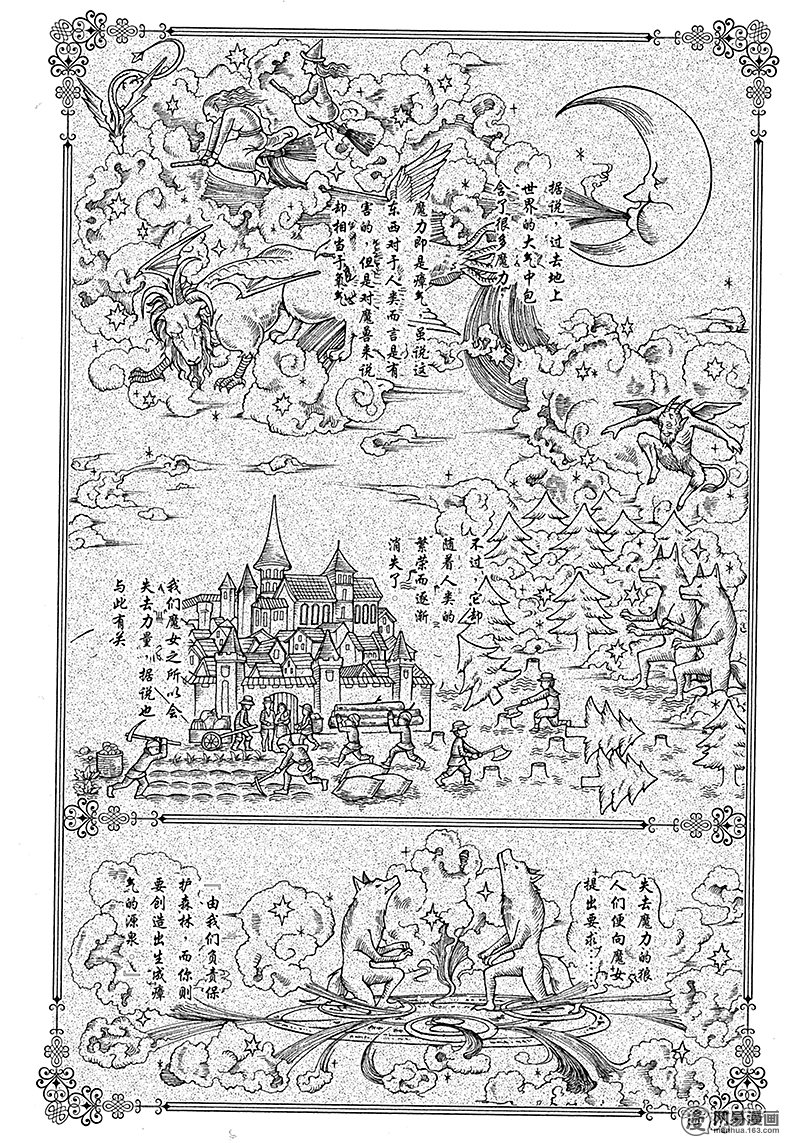 据说，过去地上
世界的大气中包
含了很多魔力。
魔力即是瘴气。虽说这
东西对于人类而言是有
害的，但是对魔兽来说
却相当于氧气
不过，它却
随着人类的
繁荣而逐渐
消失了
我们魔女之所以会
失去力量，据说也
与此有关
失去魔力的狼
人们便向魔女
提出要求……
『由我们负责保
护森林，而你则
要创造出生成瘴
气的源泉』
网易漫画
manhua.163.com